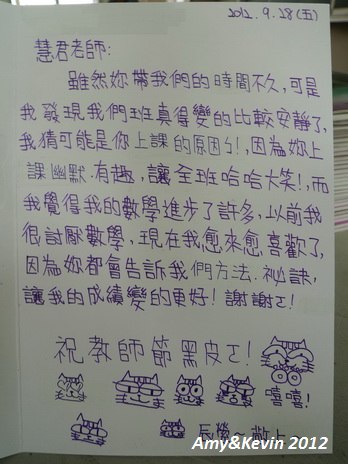 2012. 9. 28 (五)
慧君老師:
雖然妳帶我們的時間不久,可是
我發現我們班真得變的比較安靜了,
我猜可能是你上課的原因ㄅ!,因為妳上
課幽默.有趣,讓全班哈哈大笑!,而
我覺得我的數學進步了許多,以前我
很討厭數學,現在我愈來愈喜歡了,
因為妳都會告訴我們方法.祕訣,
讓我的成績變的更好!謝謝ㄛ!
祝教師節黑皮ㄛ!
嘻嘻!
敲上
Amy&Kevin 2012